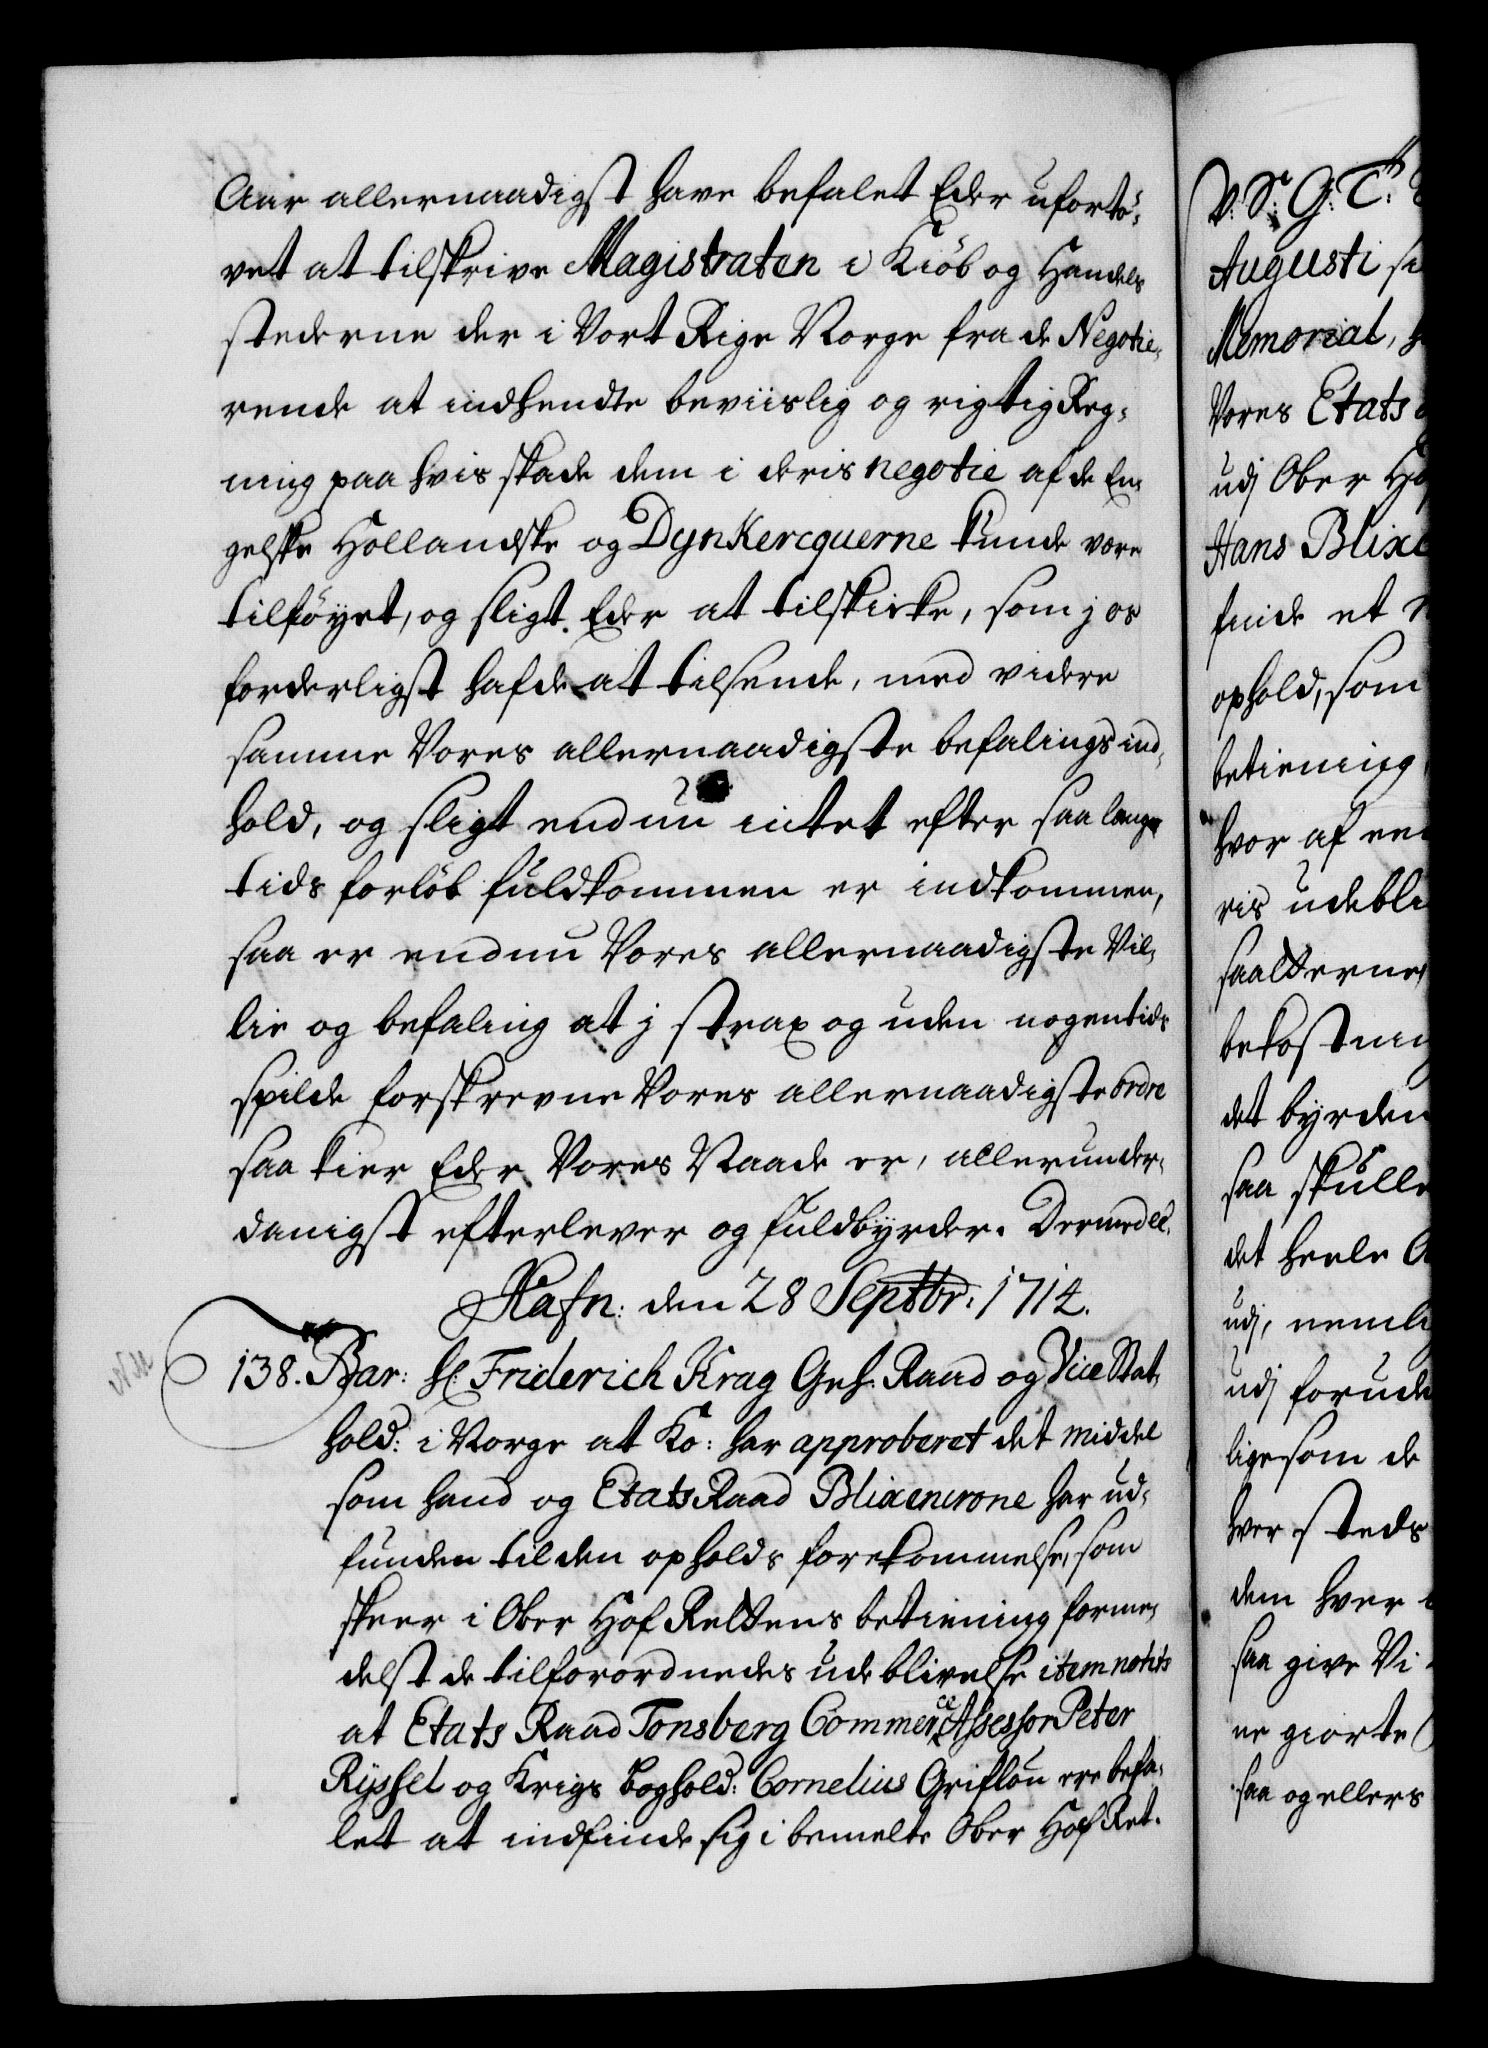 Aar allernaadigst have befalet Eder ufortö-
vet at tilskrive Magistraten i Kiöb og Handels
stederne der i Vort Rige Norge fra de Negotie-
rende at indhendte beviislig og rigtig Reg-
ning paa hvis skade dem i deris negotie af de En-
gelske Hollandske og Dynkercquerne kunde være
tilföyet, og sligt Eder at tilskicke, som j os
forderligst hafde at tilsende, med videre
samme Vores allernaadigste befalings ind-
hold, og sligt endnu intet efter saa lang
tids forlöb fuldkommen er indkommen,
saa er endnu Vores allernaadigste Vil-
lie og befaling at j strax og uden nogen tids
spilde forskrevne Vores allernaadigste ordre
saa kier Eder Vores Naade er, allerunder-
danigst efterlever og fuldbyrder. Dermed etc.
Hafn: den 28 Septbr: 1714.
138. Bar: hr: Friderich Krag Geh. Raad og Vice Stat-
hold: i Norge at Ko: har approberet det middel
som hand og Etats Raad Blixencrone har ud-
funden til den opholds forekommelse, som
skeer i Ober Hof Rettens betiening forme-
delst de tilforordnedes udeblivelse item notits
at Etats Raad Tonsberg Commerce Assessor Peter
Ryssel og Krigs boghold: Cornelius Griflou ere befa-
let at indfinde sig i bemelte Ober Hof Ret.
V. S. G. T.
Augusti
Memorial,
Vores Etats
udj Ober
Hans Blixe
finde et
ophold, som
betiening
hvor af
ris udebli
saalterne
bekostni
det byrden
saa skulle
det heele
udj, nemli
udj forude
ligesom de
hver steds
dem hver
saa give Vi
ne giorte
saa og ellers